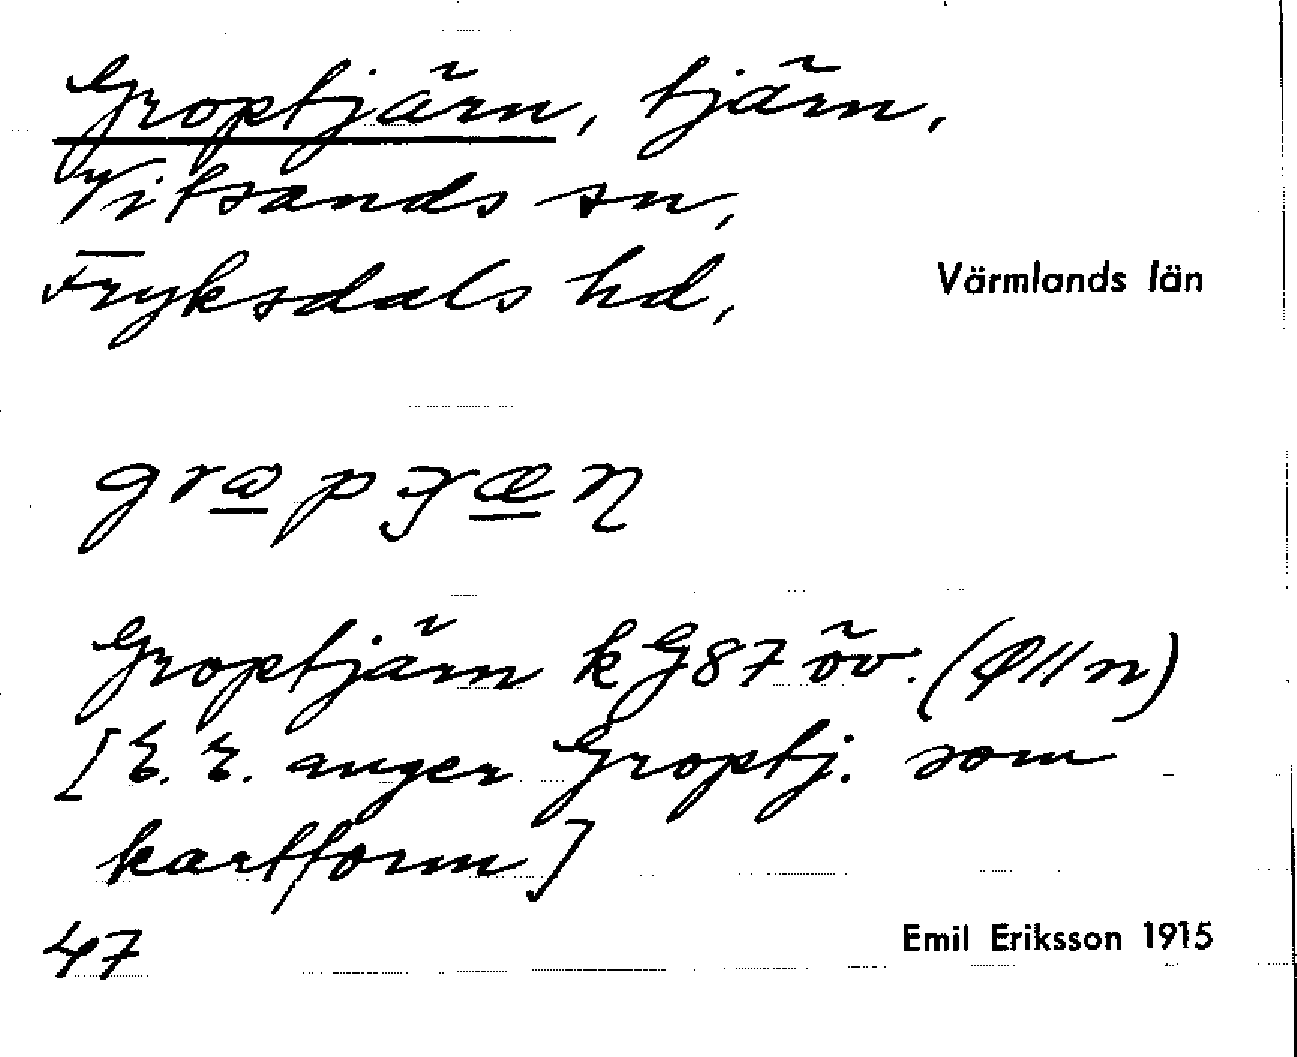 Groptjärn, tjärn,
Vitsands sn,
Fryksdals hd, Värmlands län
Groptjärn k G87 öv.
[E. E. anger Groptj. som
kartform]
47 Emil Eriksson 1915